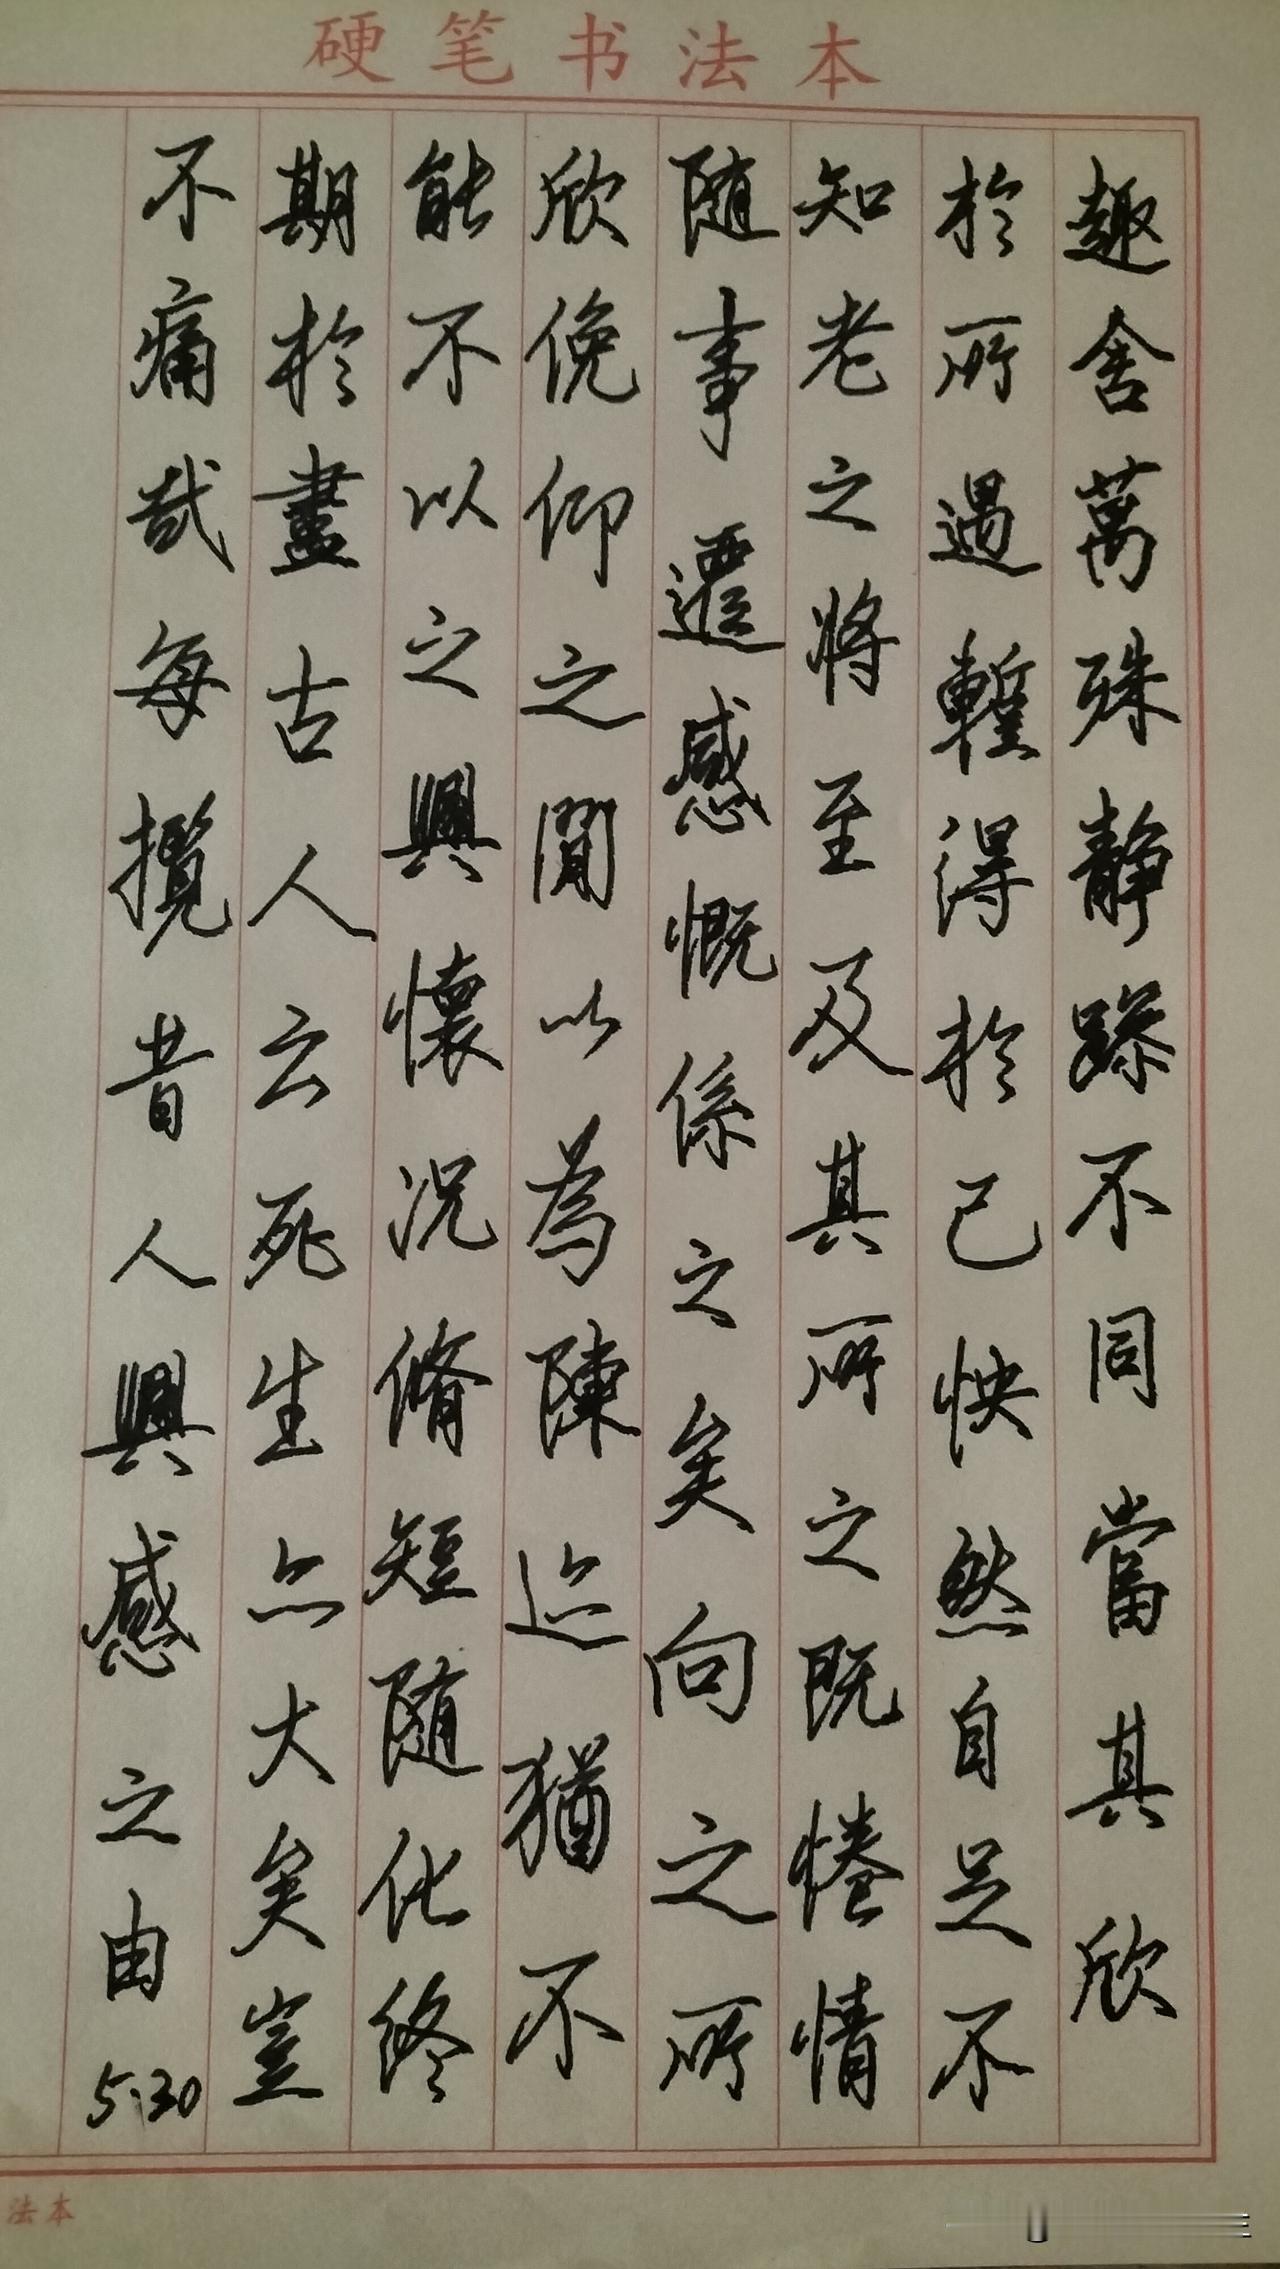 硬笔书法本
趣舍萬殊静躁不同當其欣
於所遇蹔得於己怏然自足不
知老之将至及其所之既惓情
随事遷感慨係之矣向之所
欣俛仰之閒以為陳迹猶不
能不以之興懷况脩短随化終
期於盡古人云死生亦大矣豈
不痛哉每攬昔人興感之由
5.30
法本